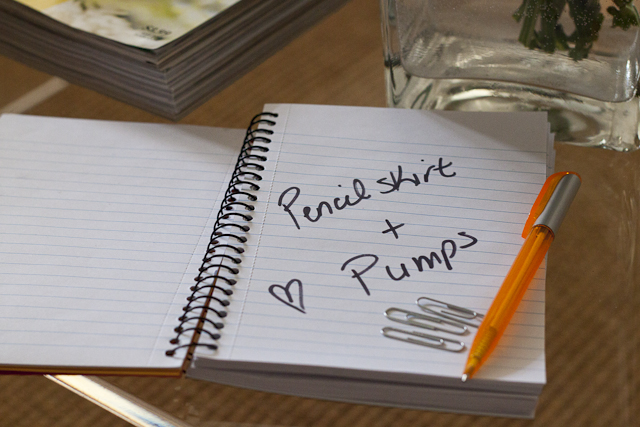 Pencil skirt
+
Pumps